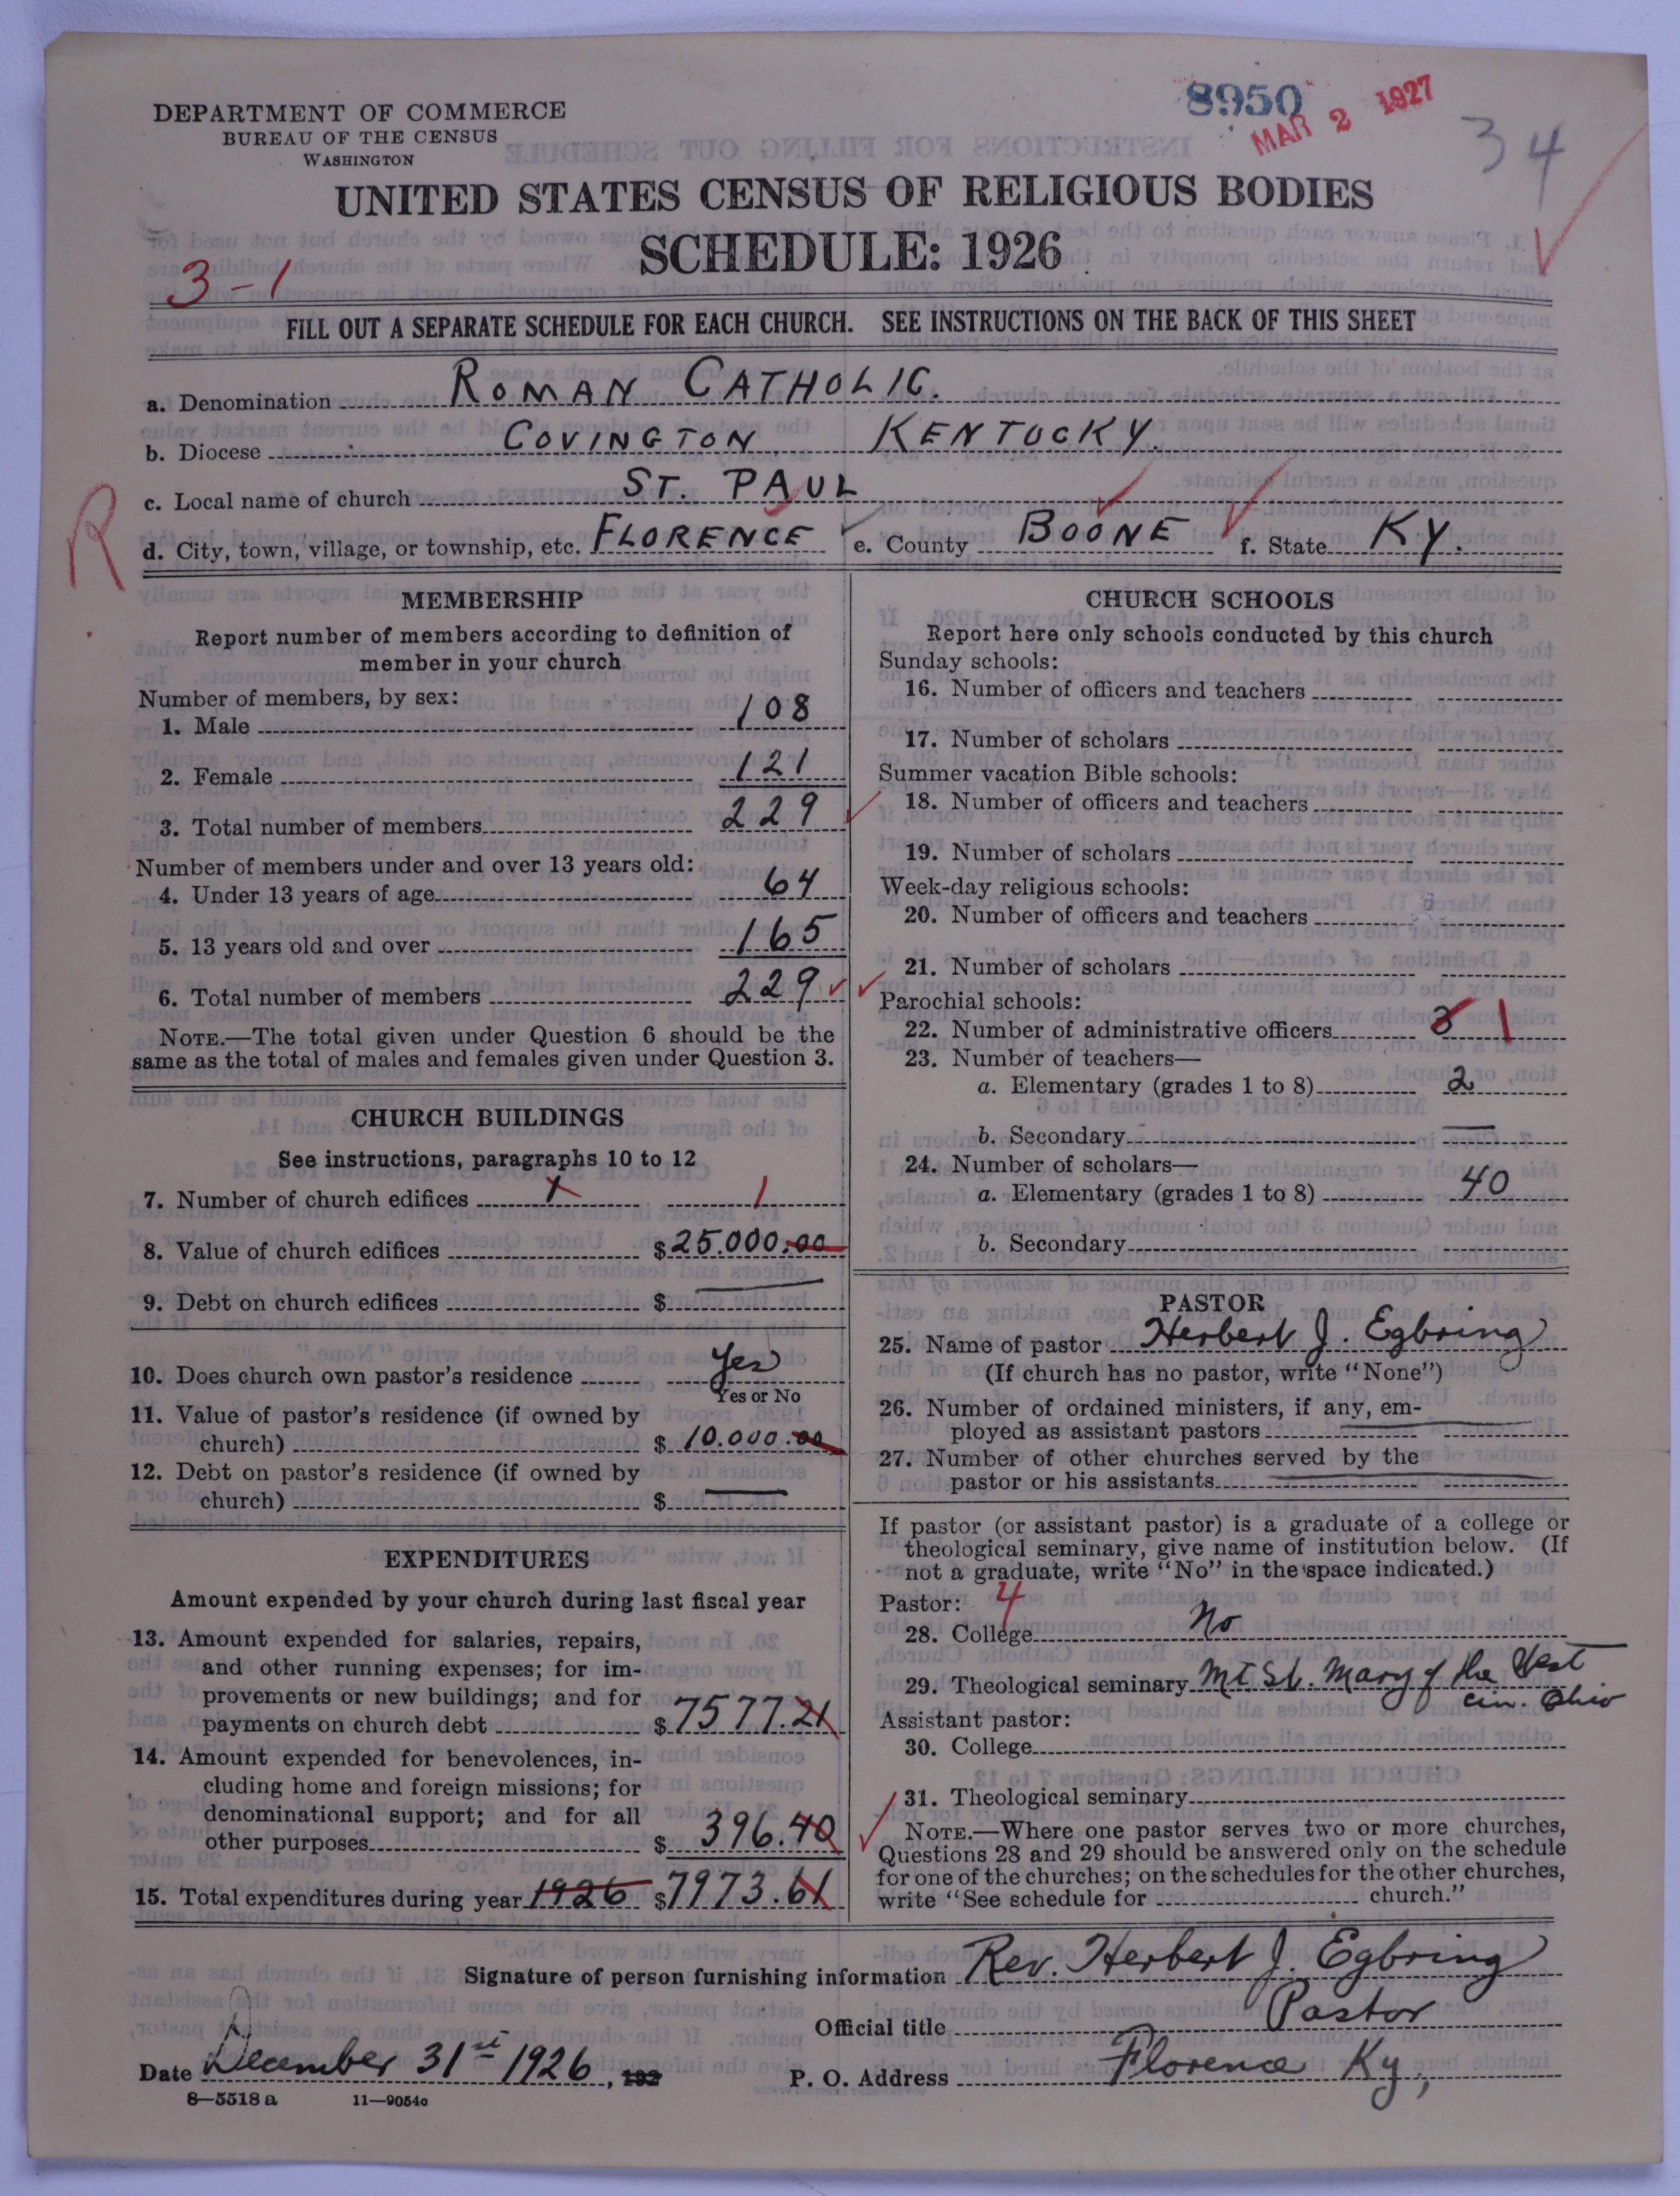 8950
MAR 2 1927
34
DEPARTMENT OF COMMERCE
BUREAU OF THE CENSUS
WASHINGTON
UNITED STATES CENSUS OF RELIGIOUS BODIES
SCHEDULE: 1926
3-1
FILL OUT A SEPARATE SCHEDULE FOR EACH CHURCH. SEE INSTRUCTIONS ON THE BACK OF THIS SHEET
a. Denomination ROMAN CATHOLIC.
b. Diocese COVINGTON KENTUCKY.
c. Local name of church ST. PAUL
R
d. City, town, village, or township, etc. FLORENCE e. County BOONE f. State KY.
MEMBERSHIP
Report number of members according to definition of
member in your church
Number of members, by sex:
1. Male 108
2. Female 121
3. Total number of members 229
Number of members under and over 13 years old:
4. Under 13 years of age 64
5. 13 years old and over 165
6. Total number of members 229
NOTE.—The total given under Question 6 should be the
same as the total of males and females given under Question 3.
CHURCH BUILDINGS
See instructions, paragraphs 10 to 12
7. Number of church edifices 1 1
8. Value of church edifices $25.000.00
9. Debt on church edifices $ —
10. Does church own pastor's residence Yes
Yes or No
11. Value of pastor's residence (if owned by
church) $ 10.000.00
12. Debt on pastor's residence (if owned by
church) $ —
EXPENDITURES
Amount expended by your church during last fiscal year
13. Amount expended for salaries, repairs,
and other running expenses; for im-
provements or new buildings; and for
payments on church debt $7577.21
14. Amount expended for benevolences, in-
cluding home and foreign missions; for
denominational support; and for all
other purposes $ 396.40
15. Total expenditures during year 1926 $7973.61
CHURCH SCHOOLS
Report here only schools conducted by this church
Sunday schools:
16. Number of officers and teachers
17. Number of scholars
Summer vacation Bible schools:
18. Number of officers and teachers
19. Number of scholars
Week-day religious schools:
20. Number of officers and teachers
21. Number of scholars
Parochial schools:
22. Number of administrative officers 3 1
23. Number of teachers—
a. Elementary (grades 1 to 8) 2
b. Secondary —
24. Number of scholars—
a. Elementary (grades 1 to 8) 40
b. Secondary
PASTOR
25. Name of pastor Herbert J. Egbring
(If church has no pastor, write "None")
26. Number of ordained ministers, if any, em-
ployed as assistant pastors —
27. Number of other churches served by the
pastor or his assistants —
If pastor (or assistant pastor) is a graduate of a college or
theological seminary, give name of institution below. (If
not a graduate, write "No" in the space indicated.)
Pastor: 4
28. College No
29. Theological seminary Mt St. Mary of the West
Cin. Ohio
Assistant pastor:
30. College
31. Theological seminary
NOTE.—Where one pastor serves two or more churches,
Questions 28 and 29 should be answered only on the schedule
for one of the churches; on the schedules for the other churches,
write "See schedule for church."
Signature of person furnishing information Rev. Herbert J. Egbring
Official title Pastor
Date December 31st 1926, 192
P. O. Address Florence Ky,
8—5518 a 11—9054a